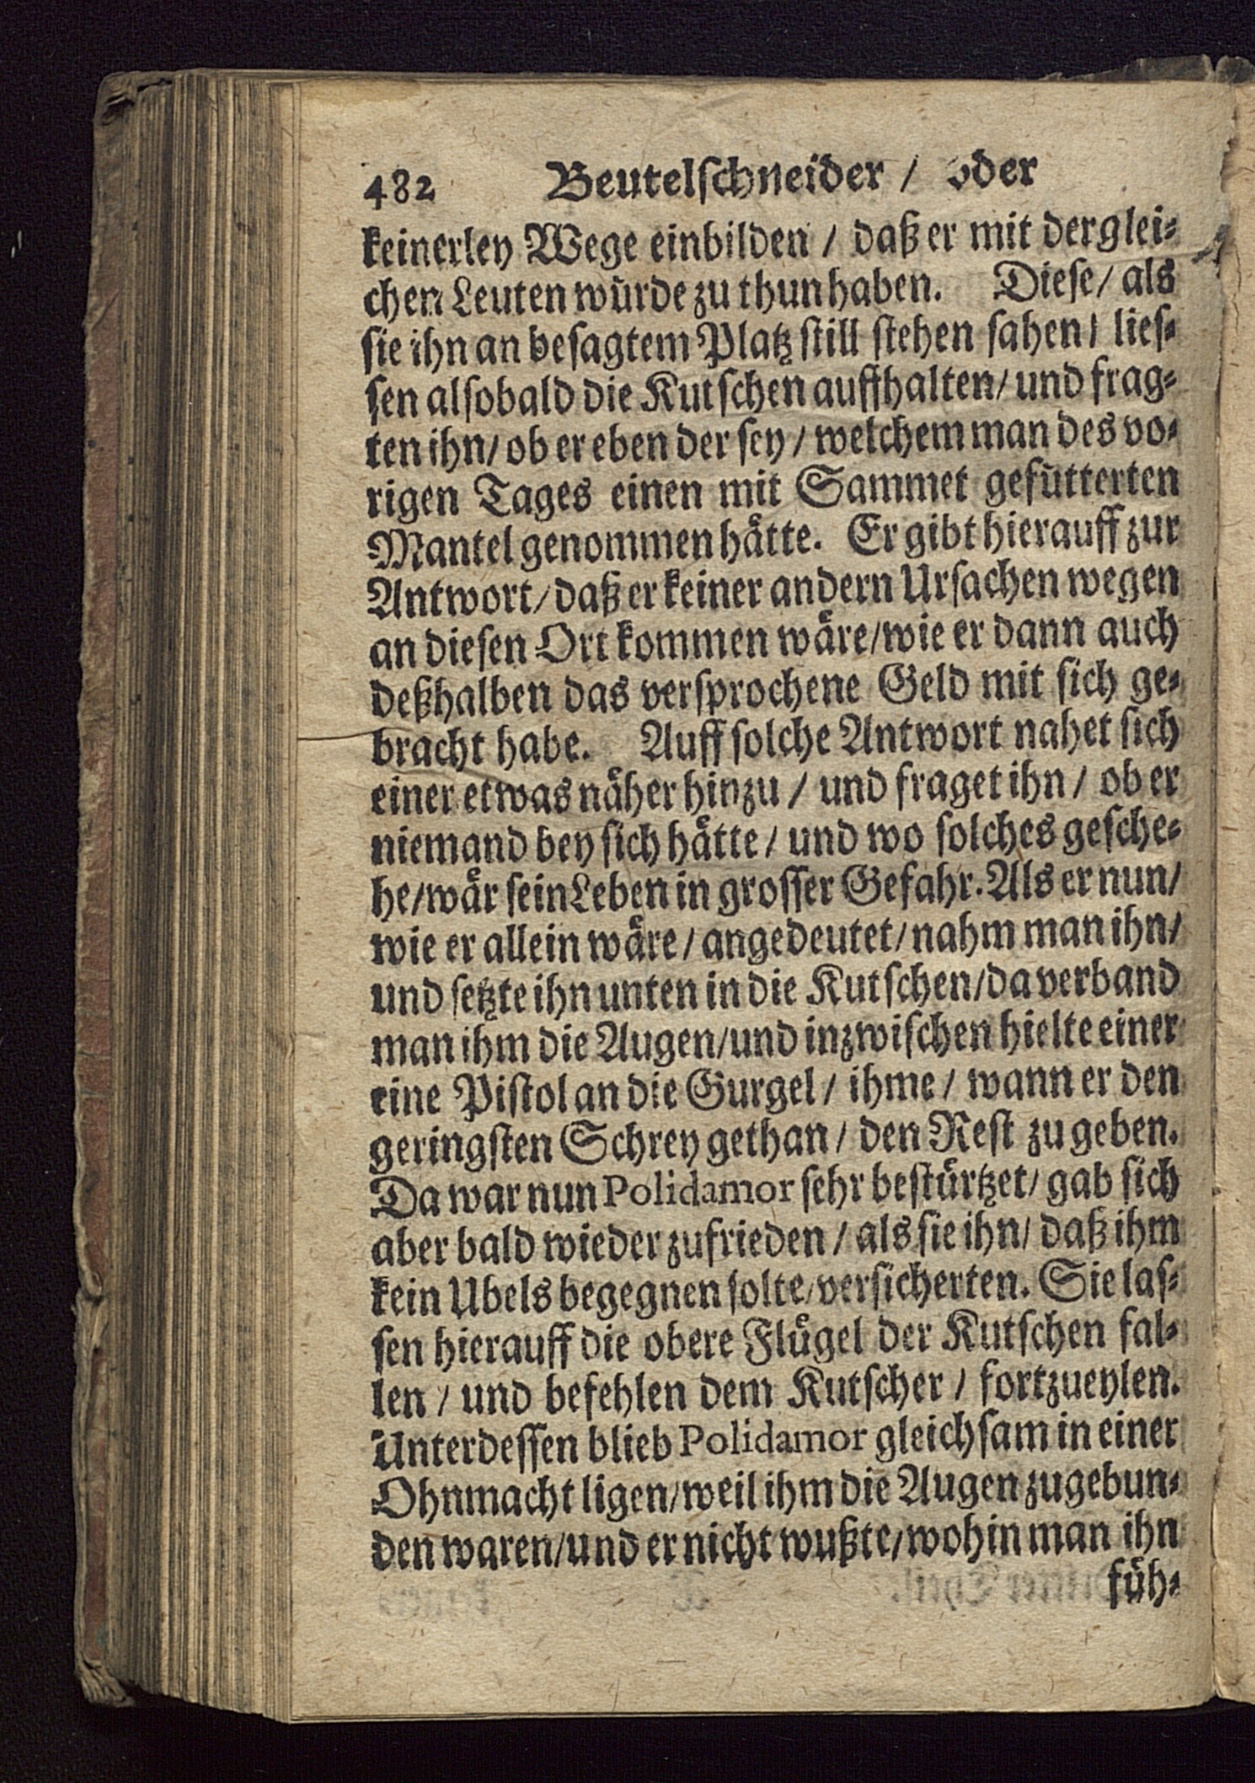 482 Beutelschneider / oder
keinerley Wege einbilden / daß er mit derglei-
chen Leuten würde zu thun haben. Diese / als
sie ihn an besagtem Platz still stehen sahen / lies-
sen alsobald die Kutschen auffhalten / und frag-
ten ihn / ob er eben der sey / welchem man des vo-
rigen Tages einen mit Sammet gefütterten
Mantel genommen hätte. Er gibt hierauff zur
Antwort / daß er keiner andern Ursachen wegen
an diesen Ort kommen wäre / wie er dann auch
deßhalben das versprochene Geld mit sich ge-
bracht habe. Auff solche Antwort nahet sich
einer etwas näher hinzu / und fraget ihn / ob er
niemand bey sich hätte / und wo solches gesche-
he / wär sein Leben in grosser Gefahr. Als er nun /
wie er allein wäre / angedeutet / nahm man ihn /
und setzte ihn unten in die Kutschen / da verband
man ihm die Augen / und inzwischen hielte einer
eine Pistol an die Gurgel / ihme / wann er den
geringsten Schrey gethan / den Rest zu geben.
Da war nun Polidamor sehr bestürtzet / gab sich
aber bald wieder zufrieden / als sie ihn / daß ihm
kein Ubels begegnen solte / versicherten. Sie las-
sen hierauff die obere Flügel der Kutschen fal-
len / und befehlen dem Kutscher / fortzueylen.
Unterdessen blieb Polidamor gleichsam in einer
Ohnmacht ligen / weil ihm die Augen zugebun-
den waren / und er nicht wußte / wohin man ihn
füh-